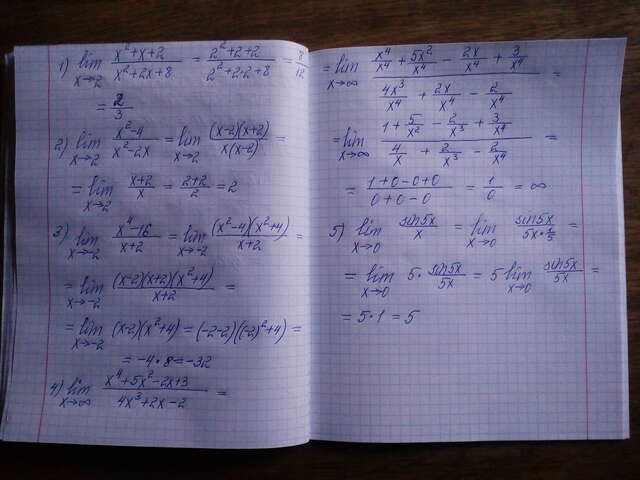 1) lim x→2 (x²+x+2)/(x²+2x+8) = (2²+2+2)/(2²+2·2+8) = 8/12
= 2/3
2) lim x→2 (x²-4)/(x²-2x) = lim x→2 ((x-2)(x+2))/(x(x-2)) =
= lim x→2 (x+2)/x = (2+2)/2 = 2
3) lim x→-2 (x⁴-16)/(x+2) = lim x→-2 ((x²-4)(x²+4))/(x+2) =
= lim x→-2 ((x-2)(x+2)(x²+4))/(x+2) =
= lim x→-2 (x-2)(x²+4) = (-2-2)((-2)²+4) =
= -4·8 = -32
4) lim x→∞ (x⁴+5x²-2x+3)/(4x³+2x-2) =
= lim x→∞ (x⁴/x⁴ + 5x²/x⁴ - 2x/x⁴ + 3/x⁴)/(4x³/x⁴ + 2x/x⁴ - 2/x⁴) =
= lim x→∞ (1 + 5/x² - 2/x³ + 3/x⁴)/(4/x + 2/x³ - 2/x⁴) =
= (1+0-0+0)/(0+0-0) = 1/0 = ∞
5) lim x→0 sin5x/x = lim x→0 sin5x/(5x·1/5) =
= lim x→0 5·sin5x/5x = 5 lim x→0 sin5x/5x =
= 5·1 = 5